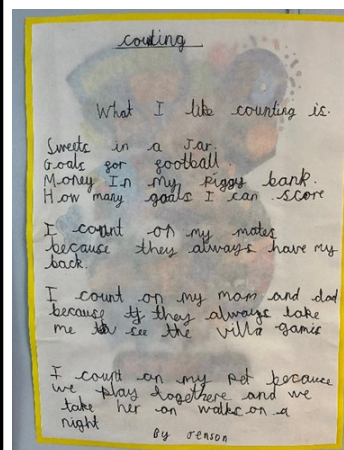 couting
What I like counting is.
Sweets in a Jar.
Goals for football.
Money In my piggy bank.
How many goals I can score
I count on my mates
because they always have my
back.
I count on my mom and dad
because they always take
me to see the villa games
I count on my pet because
we play togethere and we
take her on walks on a
night
By Jenson